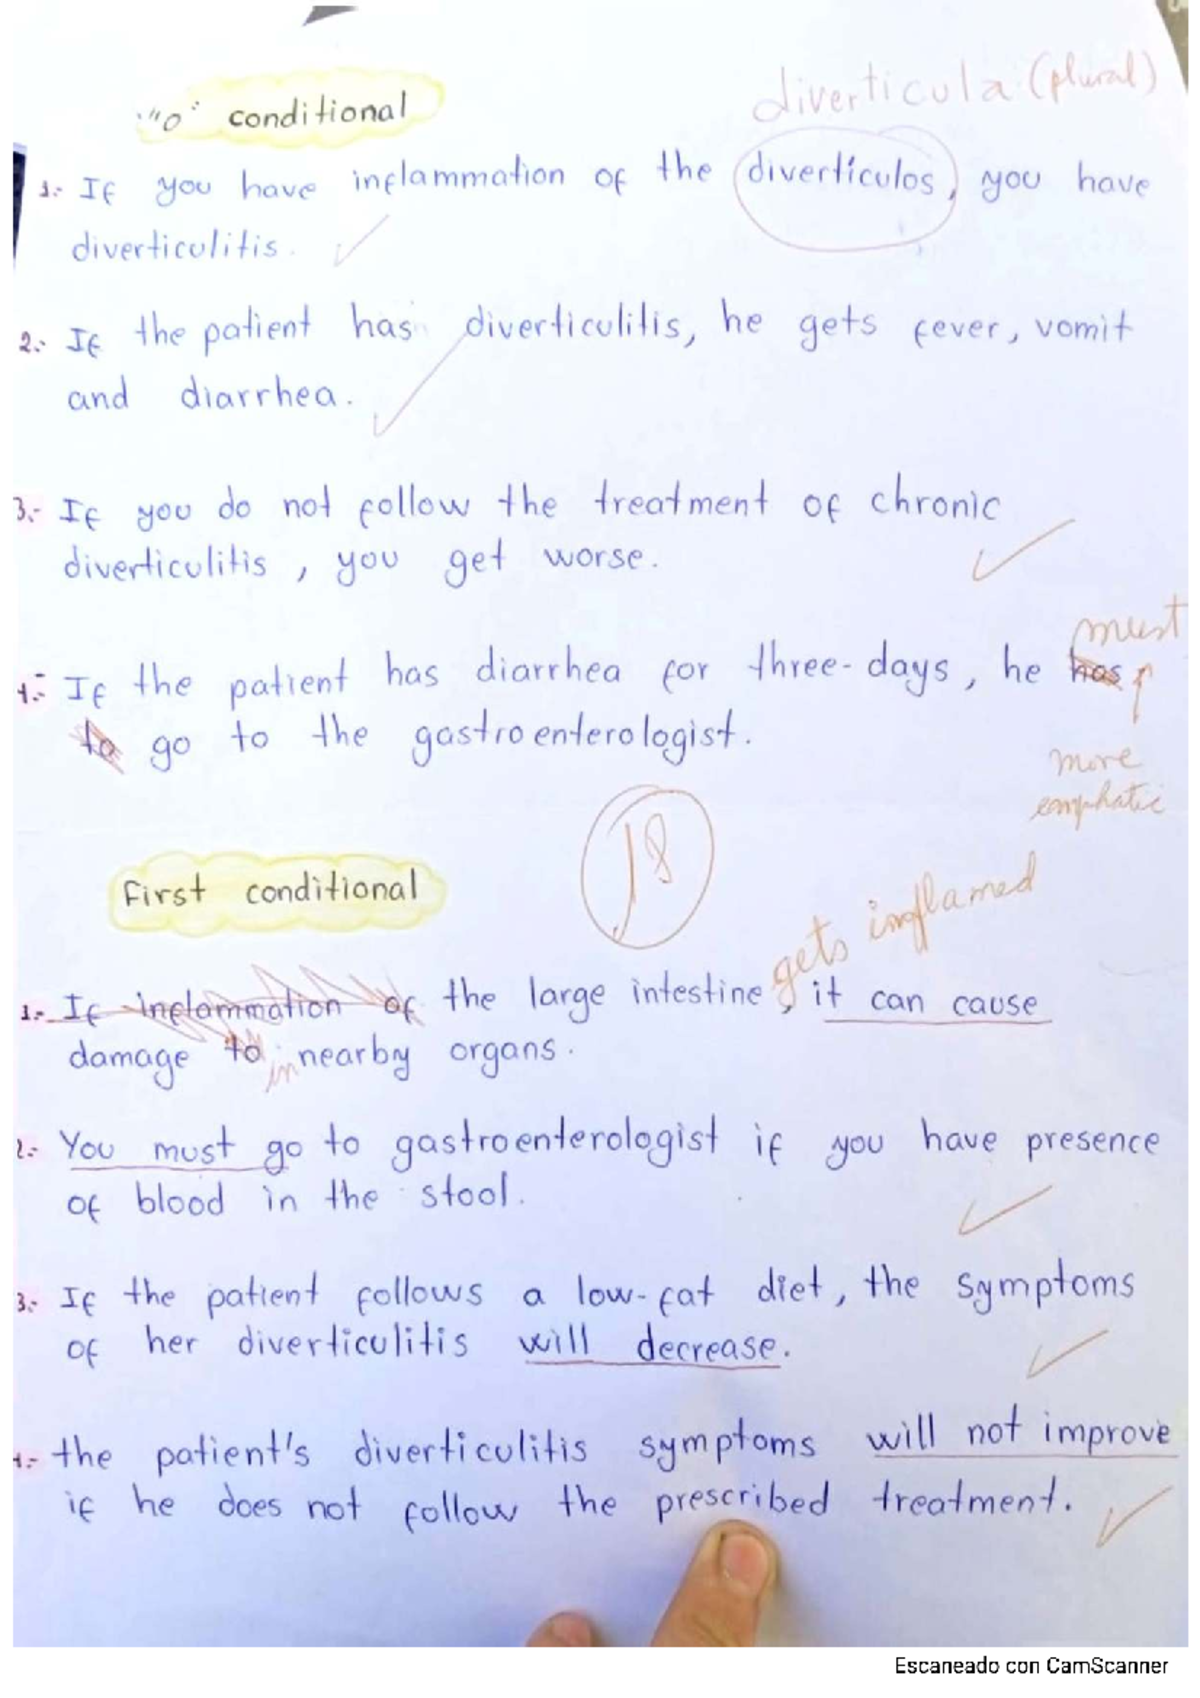 diverticula (plural)
"0" conditional
1.- If you have inflammation of the diverticulos, you have
diverticulitis.
2.- If the patient has diverticulitis, he gets fever, vomit
and diarrhea.
3.- If you do not follow the treatment of chronic
diverticulitis, you get worse.
must
4.- If the patient has diarrhea for three-days, he has
to go to the gastroenterologist.
more
emphatic
18
First conditional
gets inflamed
1.- If inflammation of the large intestine, it can cause
damage to in nearby organs.
2.- You must go to gastroenterologist if you have presence
of blood in the stool.
3.- If the patient follows a low-fat diet, the symptoms
of her diverticulitis will decrease.
4.- the patient's diverticulitis symptoms will not improve
if he does not follow the prescribed treatment.
Escaneado con CamScanner